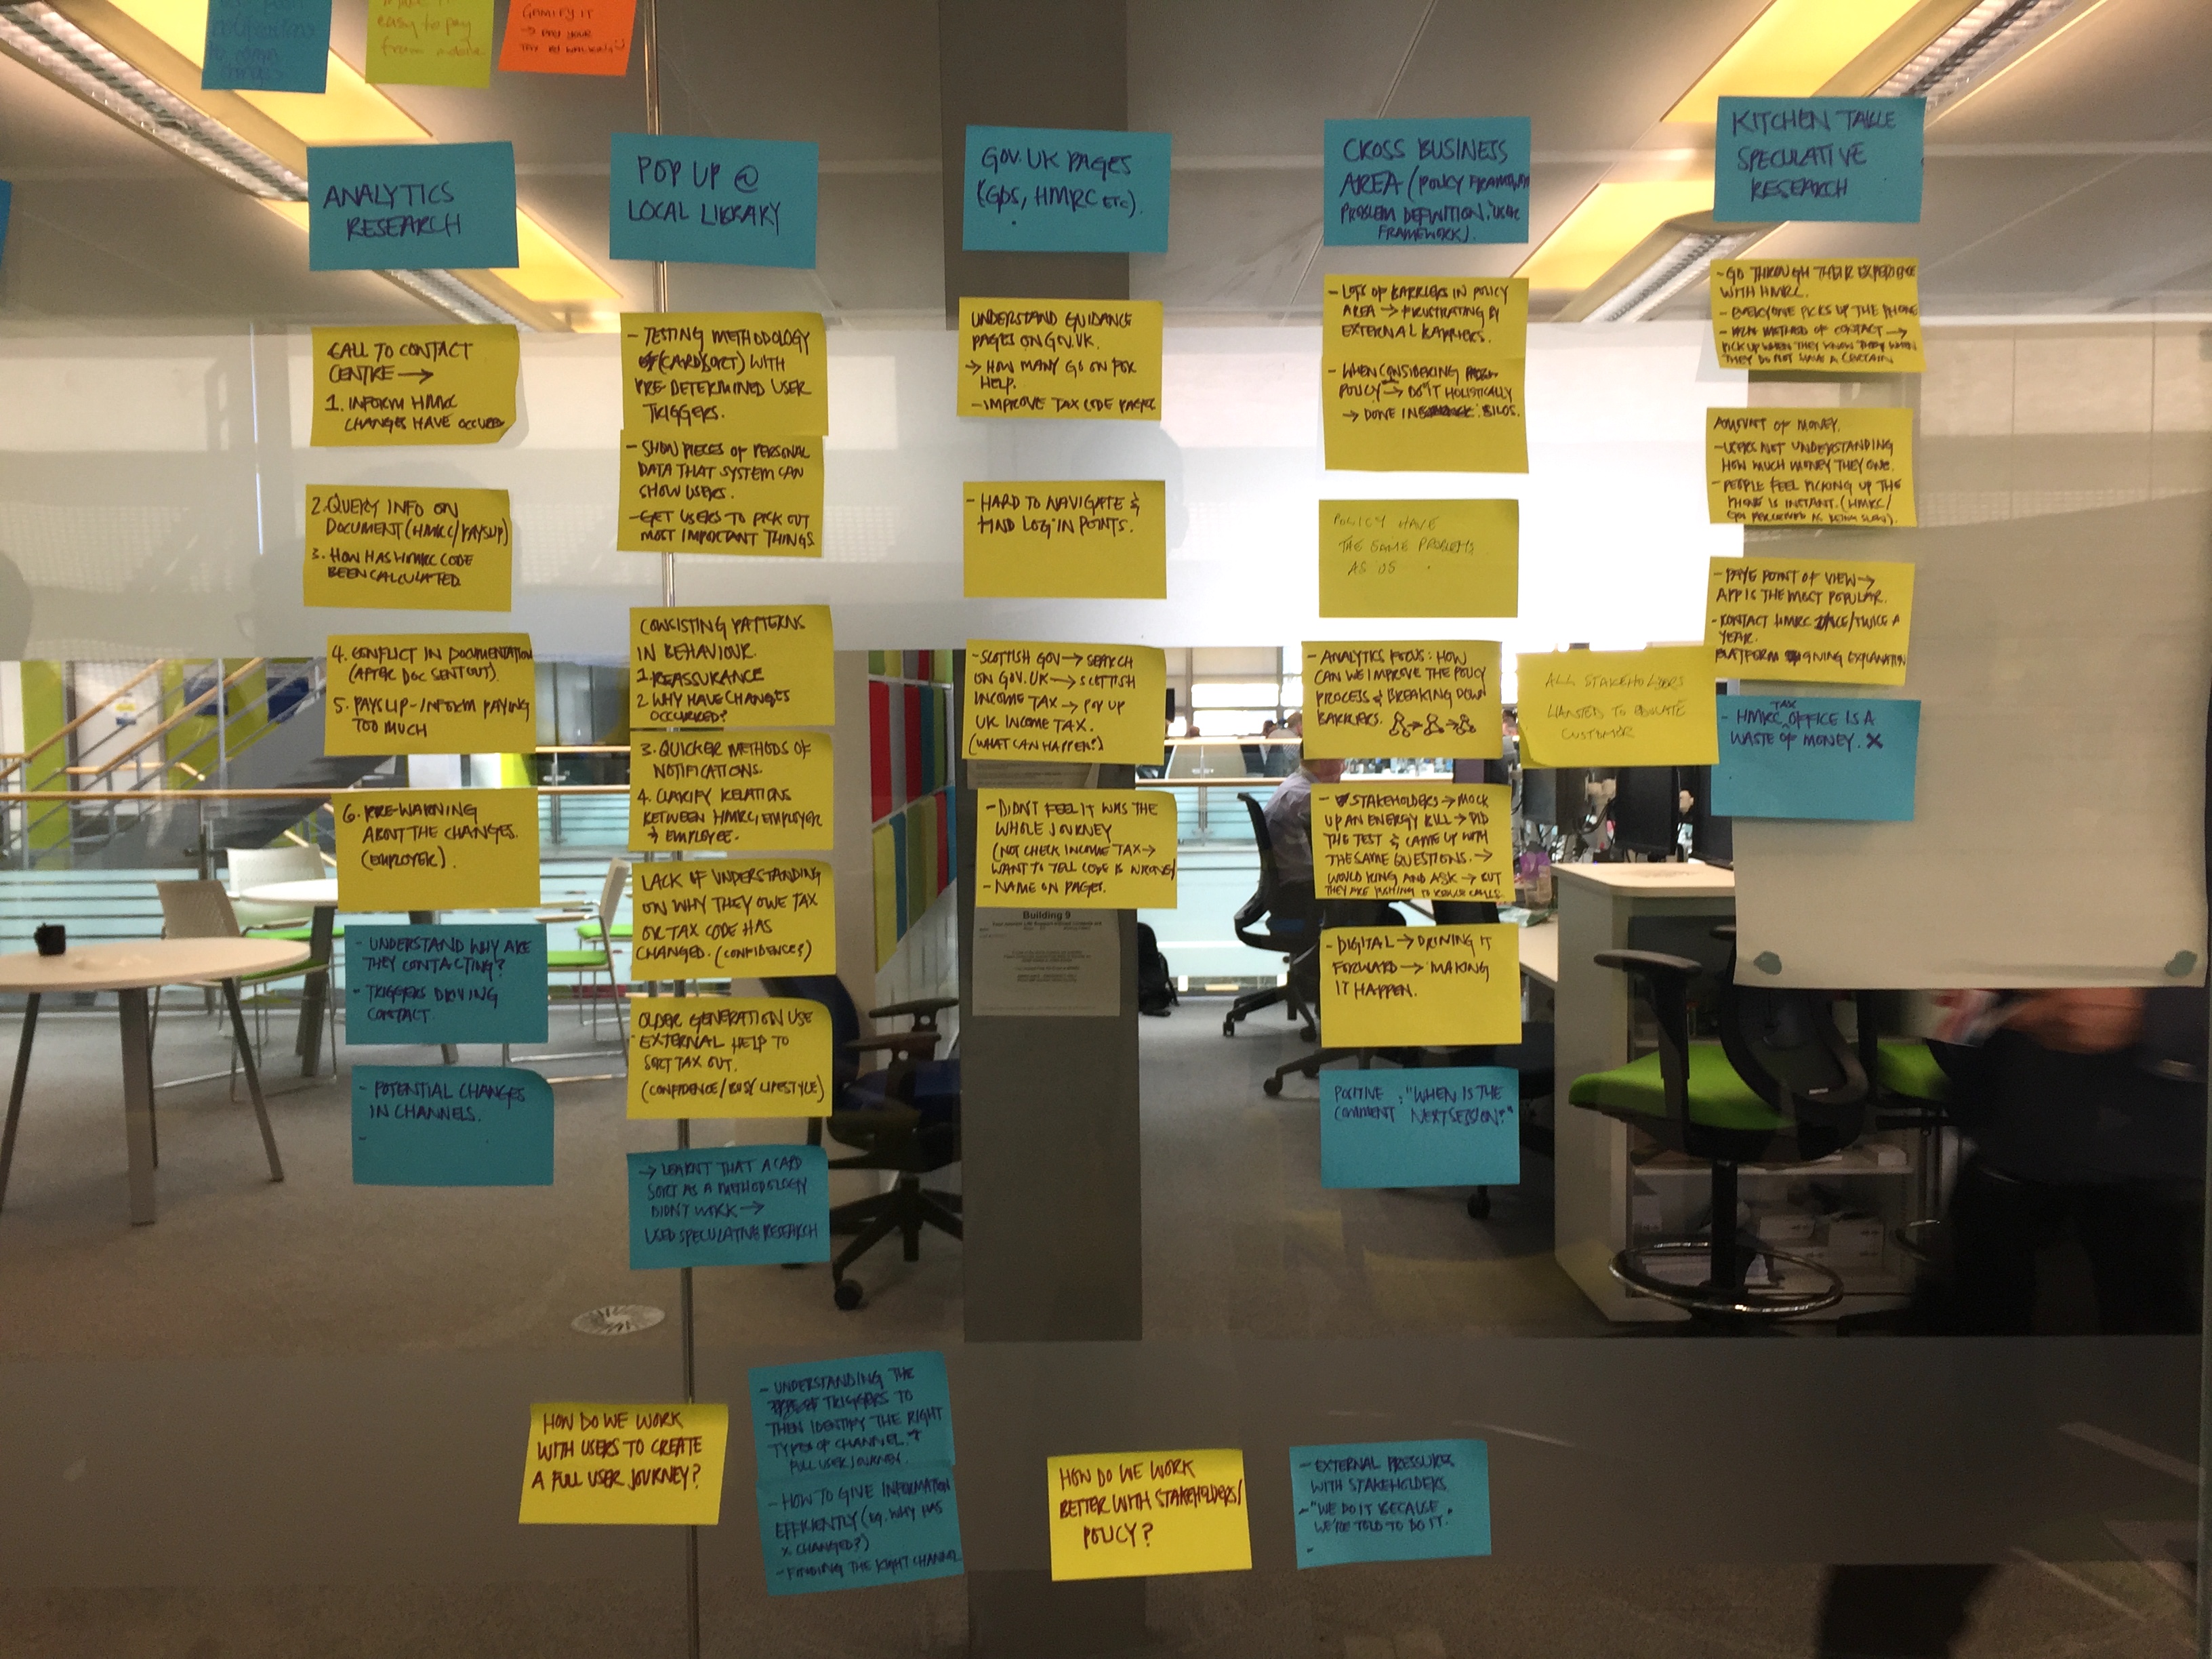 easy to pay
from mobile
GAMIFY IT
→ PAY YOUR
TAX BY WALKING
ANALYTICS
RESEARCH
CALL TO CONTACT
CENTRE →
1. INFORM HMRC
CHANGES HAVE OCCURED
2. QUERY INFO ON
DOCUMENT (HMRC/PAYSLIP)
3. HOW HAS HMRC CODE
BEEN CALCULATED
4. CONFLICT IN DOCUMENTATION
(AFTER DOC SENT OUT).
5. PAYSLIP - INFORM PAYING
TOO MUCH
6. PRE-WARNING
ABOUT THE CHANGES.
(EMPLOYER).
- UNDERSTAND WHY ARE
THEY CONTACTING?
- TRIGGERS DRIVING
CONTACT.
- POTENTIAL CHANGES
IN CHANNELS.
-
POP UP @
LOCAL LIBRARY
- TESTING METHODOLOGY
(CARD SORT) WITH
PRE DETERMINED USER
TRIGGERS.
- SHOW PIECES OF PERSONAL
DATA THAT SYSTEM CAN
SHOW USERS.
- GET USERS TO PICK OUT
MOST IMPORTANT THINGS
CONSISTING PATTERNS
IN BEHAVIOUR.
1. REASSURANCE
2 WHY HAVE CHANGES
OCCURRED?
3. QUICKER METHODS OF
NOTIFICATIONS.
4. CLARIFY RELATIONS
BETWEEN HMRC, EMPLOYER
& EMPLOYEE.
LACK OF UNDERSTANDING
ON WHY THEY OWE TAX
OR TAX CODE HAS
CHANGED. (CONFIDENCE?)
OLDER GENERATION USE
EXTERNAL HELP TO
SORT TAX OUT.
(CONFIDENCE/BUSY LIFESTYLE)
→ LEARNT THAT A CARD
SORT AS A METHODOLOGY
DIDN'T WORK →
USED SPECULATIVE RESEARCH
GOV.UK PAGES
(GDS, HMRC ETC).
UNDERSTAND GUIDANCE
PAGES ON GOV.UK.
→ HOW MANY GO ON FOR
HELP.
- IMPROVE TAX CODE PAGES
- HARD TO NAVIGATE &
FIND LOG IN POINTS.
- SCOTTISH GOV → SEARCH
ON GOV.UK → SCOTTISH
INCOME TAX → POP UP
UK INCOME TAX.
(WHAT CAN HAPPEN?)
- DIDN'T FEEL IT WAS THE
WHOLE JOURNEY
(NOT CHECK INCOME TAX →
WANT TO TELL CODE IS WRONG)
- NAME ON PAGES.
Building 9
CROSS BUSINESS
AREA (POLICY FRAMEWORK
PROBLEM DEFINITION, USER
FRAMEWORK).
- LOTS OF BARRIERS IN POLICY
AREA → FRUSTRATING BY
EXTERNAL BARRIERS.
- WHEN CONSIDERING
POLICY → DO IT HOLISTICALLY
→ DONE IN SILOS.
POLICY HAVE
THE SAME PROBLEMS
AS US
- ANALYTICS FOCUS: HOW
CAN WE IMPROVE THE POLICY
PROCESS & BREAKING DOWN
BARRIERS.
ALL STAKEHOLDERS
WANTED TO EDUCATE
CUSTOMER
- STAKEHOLDERS → MOCK
UP AN ENERGY BILL → DID
THE TEST & CAME UP WITH
THE SAME QUESTIONS. →
WOULD RING AND ASK → BUT
THEY ARE PUSHING TO REDUCE CALLS.
- DIGITAL → DRIVING IT
FORWARD → MAKING
IT HAPPEN.
POSITIVE : "WHEN IS THE
COMMENT NEXT SESSION?"
KITCHEN TABLE
SPECULATIVE
RESEARCH
- GO THROUGH THEIR EXPERIENCE
WITH HMRC.
- EVERYONE PICKS UP THE PHONE
- METHOD OF CONTACT →
PICK UP WHEN THEY KNOW THEY WHEN
THEY DO NOT HAVE A CERTAIN
AMOUNT OF MONEY.
- USERS NOT UNDERSTANDING
HOW MUCH MONEY THEY OWE.
- PEOPLE FEEL PICKING UP THE
PHONE IS INSTANT. (HMRC/
GOV PERCEIVED AS BEING SLOW).
- PAYE POINT OF VIEW →
APP IS THE MOST POPULAR.
- CONTACT HMRC ONCE/TWICE A
YEAR.
PLATFORM GIVING EXPLANATION
- HMRC TAX OFFICE IS A
WASTE OF MONEY. X
HOW DO WE WORK
WITH USERS TO CREATE
A FULL USER JOURNEY?
- UNDERSTANDING THE
TRIGGERS TO
THEN IDENTIFY THE RIGHT
TYPES OF CHANNEL. +
FULL USER JOURNEY.
- HOW TO GIVE INFORMATION
EFFICIENTLY (EG. WHY HAS
X CHANGED?)
- FINDING THE RIGHT CHANNEL
HOW DO WE WORK
BETTER WITH STAKEHOLDERS/
POLICY?
- EXTERNAL PRESSURES
WITH STAKEHOLDERS
- "WE DO IT BECAUSE
WE'RE TOLD TO DO IT."
-